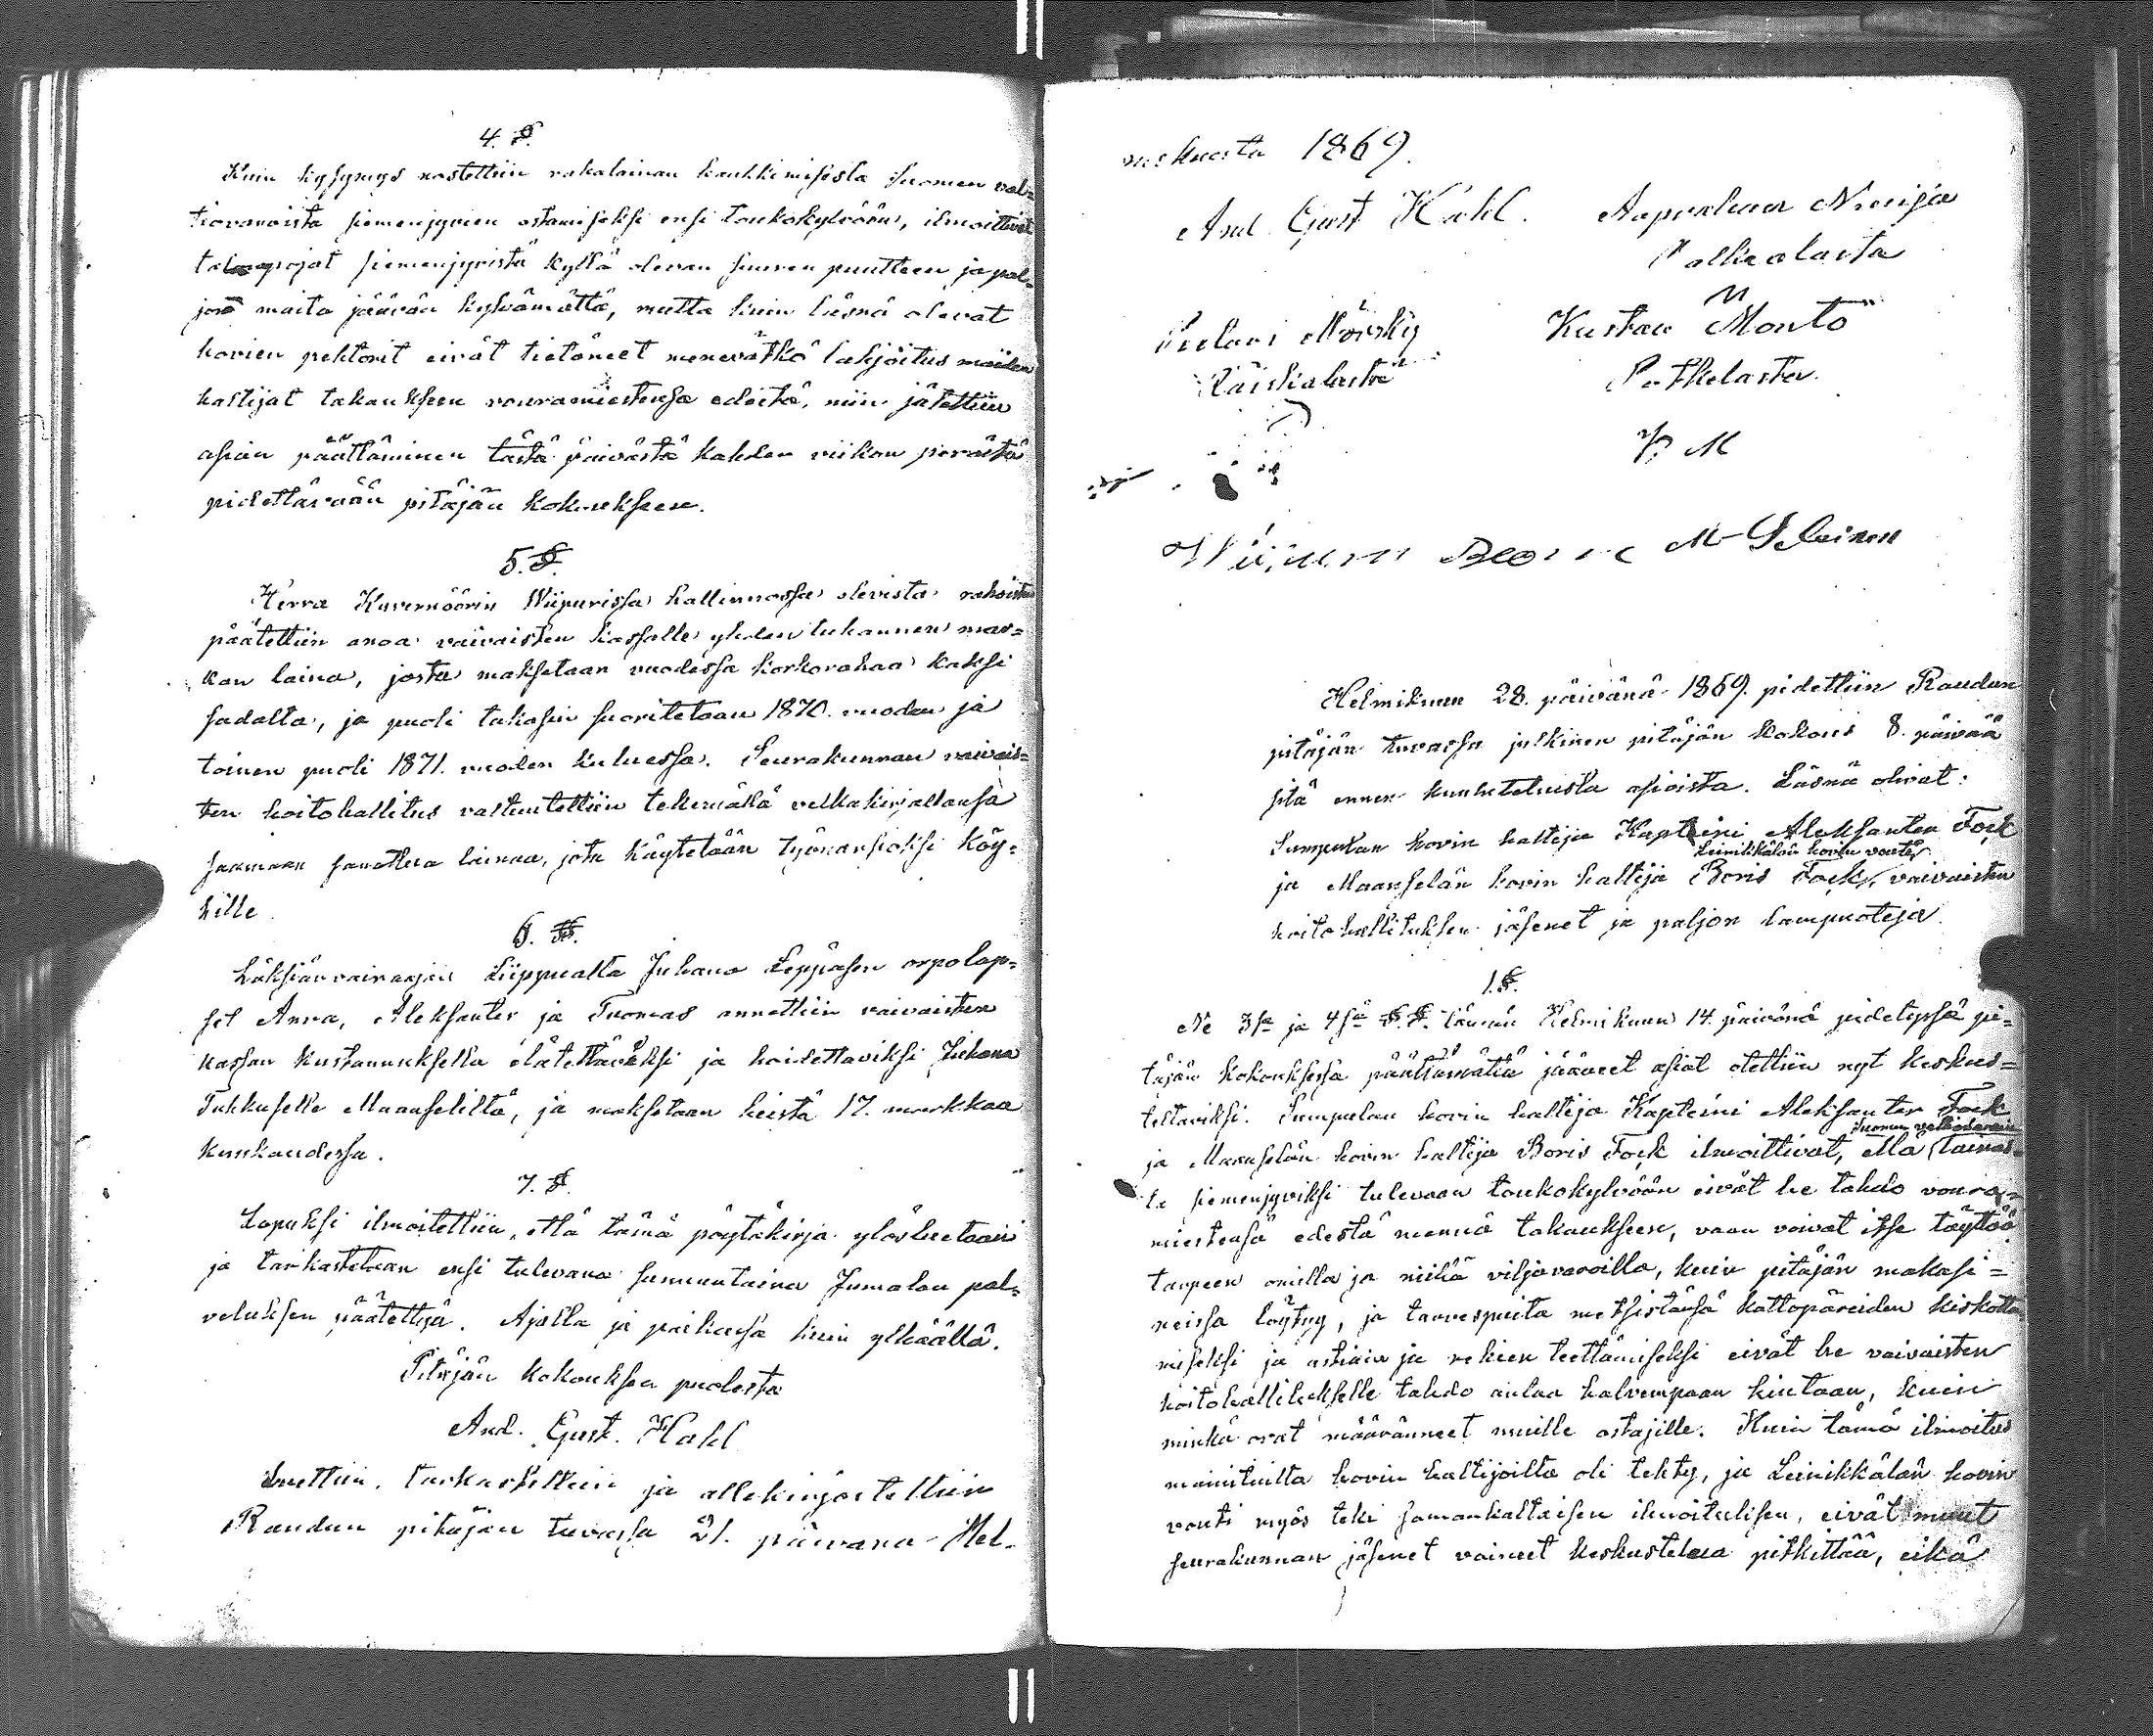 4. §.
Kuin kysymys nostettiin rahalainan hankkimisesta Suomen val=
tiovaroista siemenjyvien ostamiseksi ensi toukokylvöön, ilmoittivat
talonpojat siemenjyvistä kyllä olevan suuren puutteen ja pal=
jon maita jäävän kylvämättä, mutta kuin läsnä olevat
hovien pehtorit eivät tietäneet menevätkö lahjoitus maiden
haltijat takaukseen vouramiestensä edestä, niin jätettiin
asian päättäminen tästä päivästä kahden viikon perästä
pidettävään pitäjän kokoukseen.
5. §.
Herra Kuvernöörin Wiipurissa hallinnossa olevista rahoista
päätettiin anoa vaivaisten kassalle yhden tuhannen mar=
kan laina, josta maksetaan vuodessa korkorahaa kaksi
sadalta, ja puoli takasin suoritetaan 1870. vuoden ja
toinen puoli 1871. vuoden kuluessa. Seurakunnan vaivais=
ten hoitohallitus valtuutettiin tekemällä velkakirjallansa
saamaan sanottua lainaa, jota käytetään työnansioksi köy=
hille.
6. §.
Läksiänvaivaajan Liippualta Juhana Leppäsen orpolap=
set Anna, Aleksanter ja Tuomas annettiin vaivaisten
kassan kustannuksella elätettäväksi ja hoidettaviksi Juhana
Tuhkuselle Maanseliltä, ja maksetaan heistä 17. markkaa
kuukaudessa.
7. §.
Lopuksi ilmoitettiin, että tämä pöytäkirja ylösluetaan
ja tarkastetaan ensi tulevana sunnuntaina Jumalan pal=
veluksen päätettyä. Ajalla ja paikassa kuin ylhäällä.
Pitäjän kokouksen puolesta
And. Gust. Hahl
Luettiin, tarkastettiin ja allekirjoitettiin
Raudun pitäjän tuvassa 21. päivänä Hel-
mikuuta 1869.
And. Gust Hahl. Aapraham
Palkealasta
Kustaa Monto
Räikiälastä Potkelasta.
P. M
M
Helmikuun 28. päivänä 1869. pidettiin Raudun
pitäjän tuvassa julkinen pitäjän kokous 8. päivää
sitä ennen kuulutetuista asioista. Läsnä olivat:
Sumpulan hovin haltija Kapteini Aleksanter Fock
Leinikkälän hovin vouti,
ja Maanselän hovin haltija Boris Fock, vaivaisten
hoitohallituksen jäsenet ja paljon lampuoteja
1. §.
Ne 3ssa ja 4ssä §.§. tämän Helmikuun 14. päivänä pidetyssä pi=
täjän kokouksessa päättämättä jääneet asiat otettiin nyt keskus=
teltaviksi. Sumpulan hovin haltija Kapteini Aleksanter Fock
Suomen valtiovaroin
ja Maanselän hovin haltija Boris Fock ilmoittivat, että lainas=
ta siemenjyviksi tulevaan toukokylvöön eivät he tahdo voura=
miestensä edestä mennä takaukseen, vaan voivat itse täyttää
tarpeen omilla ja niillä viljavaroilla, kuin pitäjän makasi=
neissa löytyy, ja tarvespuita metsistänsä kattopäreiden kiskotta=
miseksi ja astiain ja rekien teettämiseksi eivät he vaivaisten
hoitohallitukselle tahdo antaa halvempaan hintaan, kuin
minkä ovat määränneet muille ostajille. Kuin tämä ilmoitus
mainituilta hovin haltijoilta oli tehty, ja Leinikkälän hovin
vouti myös teki samankaltaisen ilmoituksen, eivät muut
seurakunnan jäsenet voineet keskustelua pitkittää, eikä